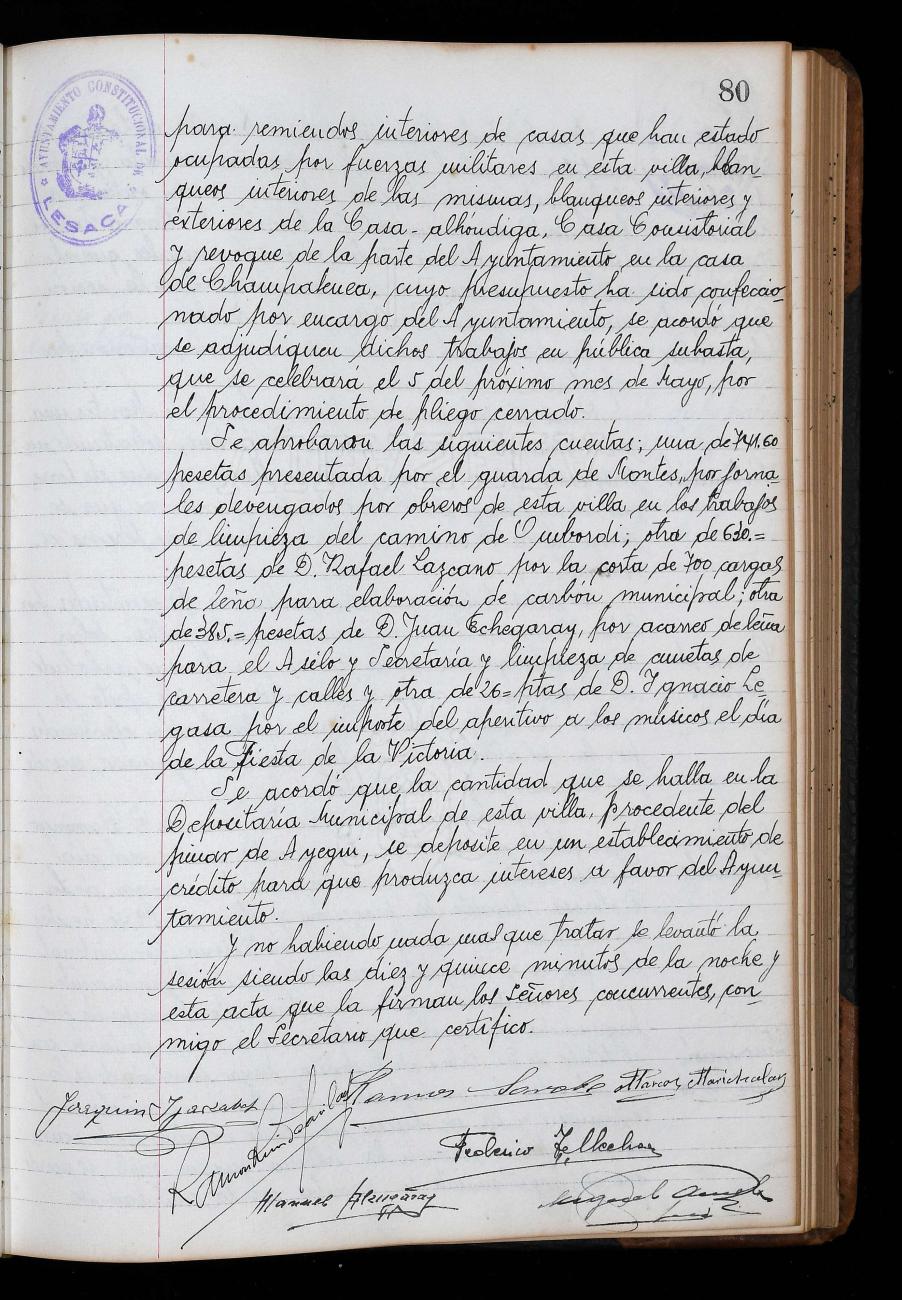 80
AYUNTAMIENTO CONSTITUCIONAL DE
LESACA
para remiendos interiores de casas que han estado
ocupadas por fuerzas militares en esta villa, blan
queos interiores de las mismas, blanqueos interiores y
exteriores de la Casa-alhóndiga, Casa Consistorial
y revoque de la parte del Ayuntamiento en la casa
de Champakenea, cuyo presupuesto ha sido confeccio-
nado por encargo del Ayuntamiento, se acordó que
se adjudiquen dichos trabajos en pública subasta,
que se celebrará el 5 del próximo mes de Mayo, por
el procedimiento de pliego cerrado.
Se aprobaron las siguientes cuentas; una de 741.60
pesetas presentada por el guarda de Montes, por jorna-
les devengados por obreros de esta villa en los trabajos
de limpieza del camino de Ombordi; otra de 630.=
pesetas de D. Rafael Lazcano por la corta de 700 cargas
de leña para elaboración de carbón municipal; otra
de 385.= pesetas de D. Juan Echegaray, por acarreo de leña
para el Asilo y Secretaría y limpieza de cunetas de
carretera y calles y otra de 26= ptas de D. Ignacio Le-
gasa por el importe del aperitivo a los músicos el día
de la fiesta de la Victoria.
Se acordó que la cantidad que se halla en la
Depositaría Municipal de esta villa, procedente del
pinar de Ayegui, se deposite en un establecimiento de
crédito para que produzca intereses a favor del Ayun-
tamiento.
Y no habiendo nada mas que tratar se levantó la
sesión siendo las diez y quince minutos de la noche y
esta acta que la firman los Señores concurrentes, con-
migo el Secretario que certifico.
Joaquin
Ramon
Marcos Marichalar
Federico
Manuel
Miguel